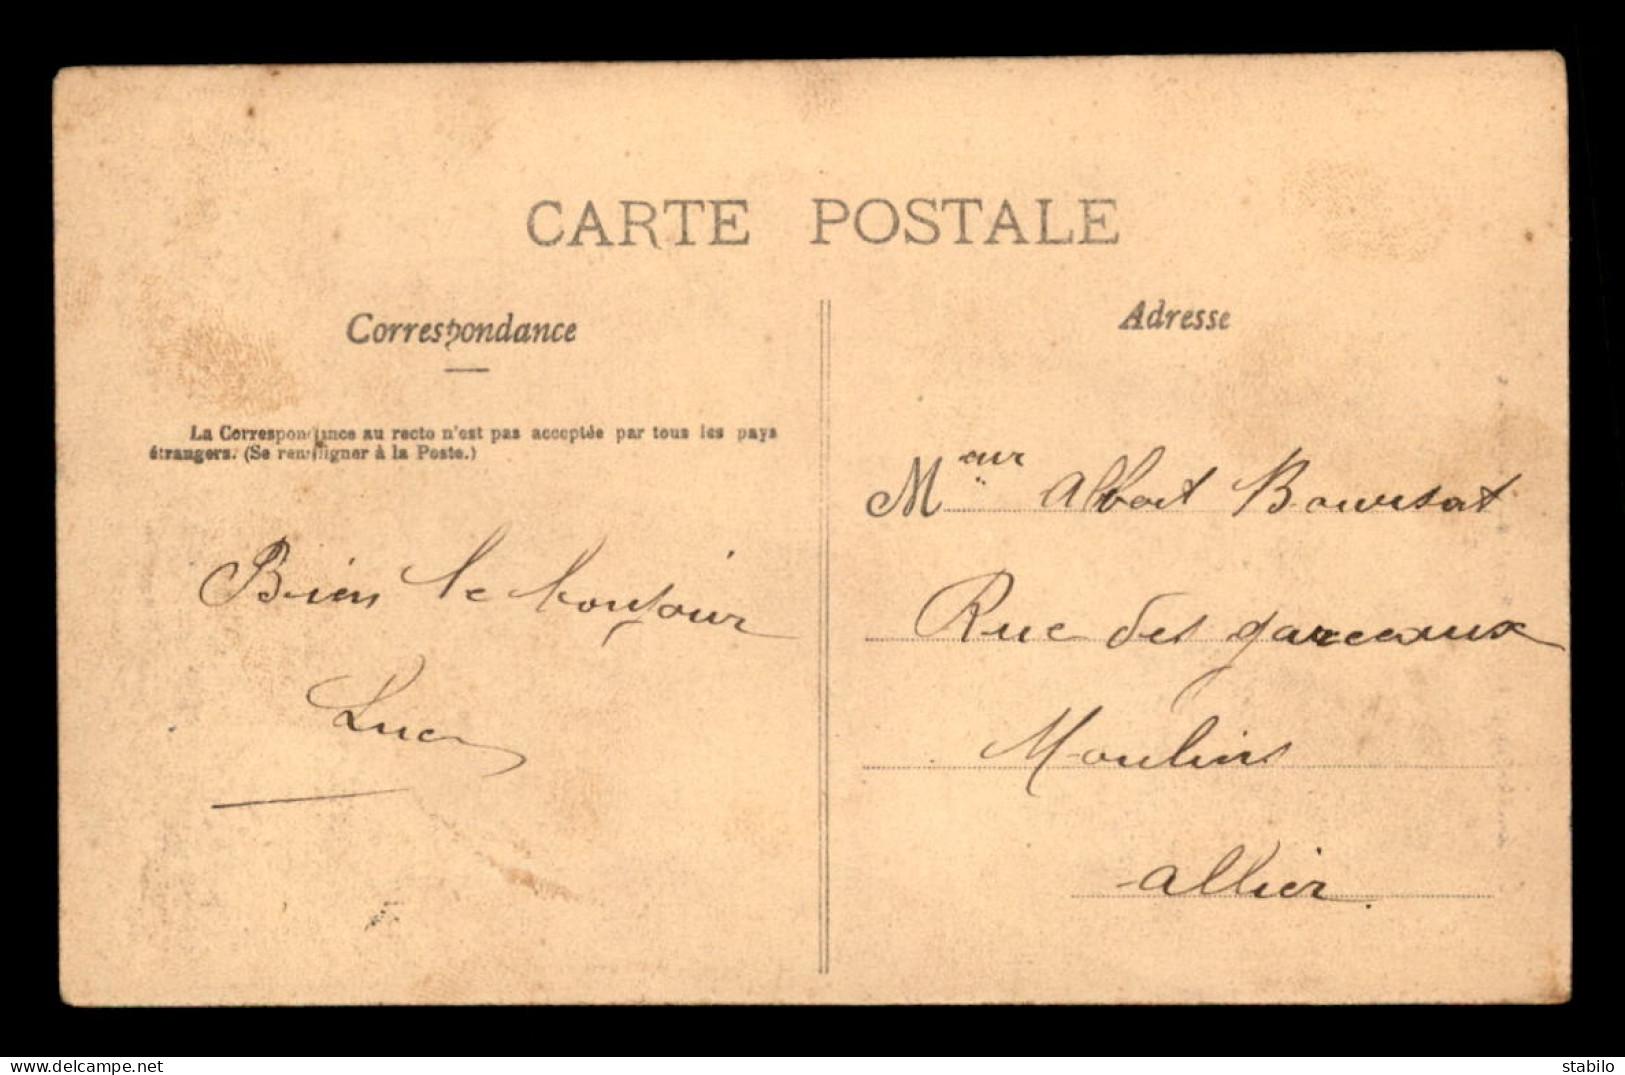 CARTE POSTALE
Correspondance
La Correspondance au recto n'est pas acceptée par tous les pays
étrangers. (Se renseigner à la Poste.)
Bien le bonjour
Luc
Adresse
Meur Albert Boursat
Rue des garceaux
Moulins
allier.
delcampe.net
stabilo